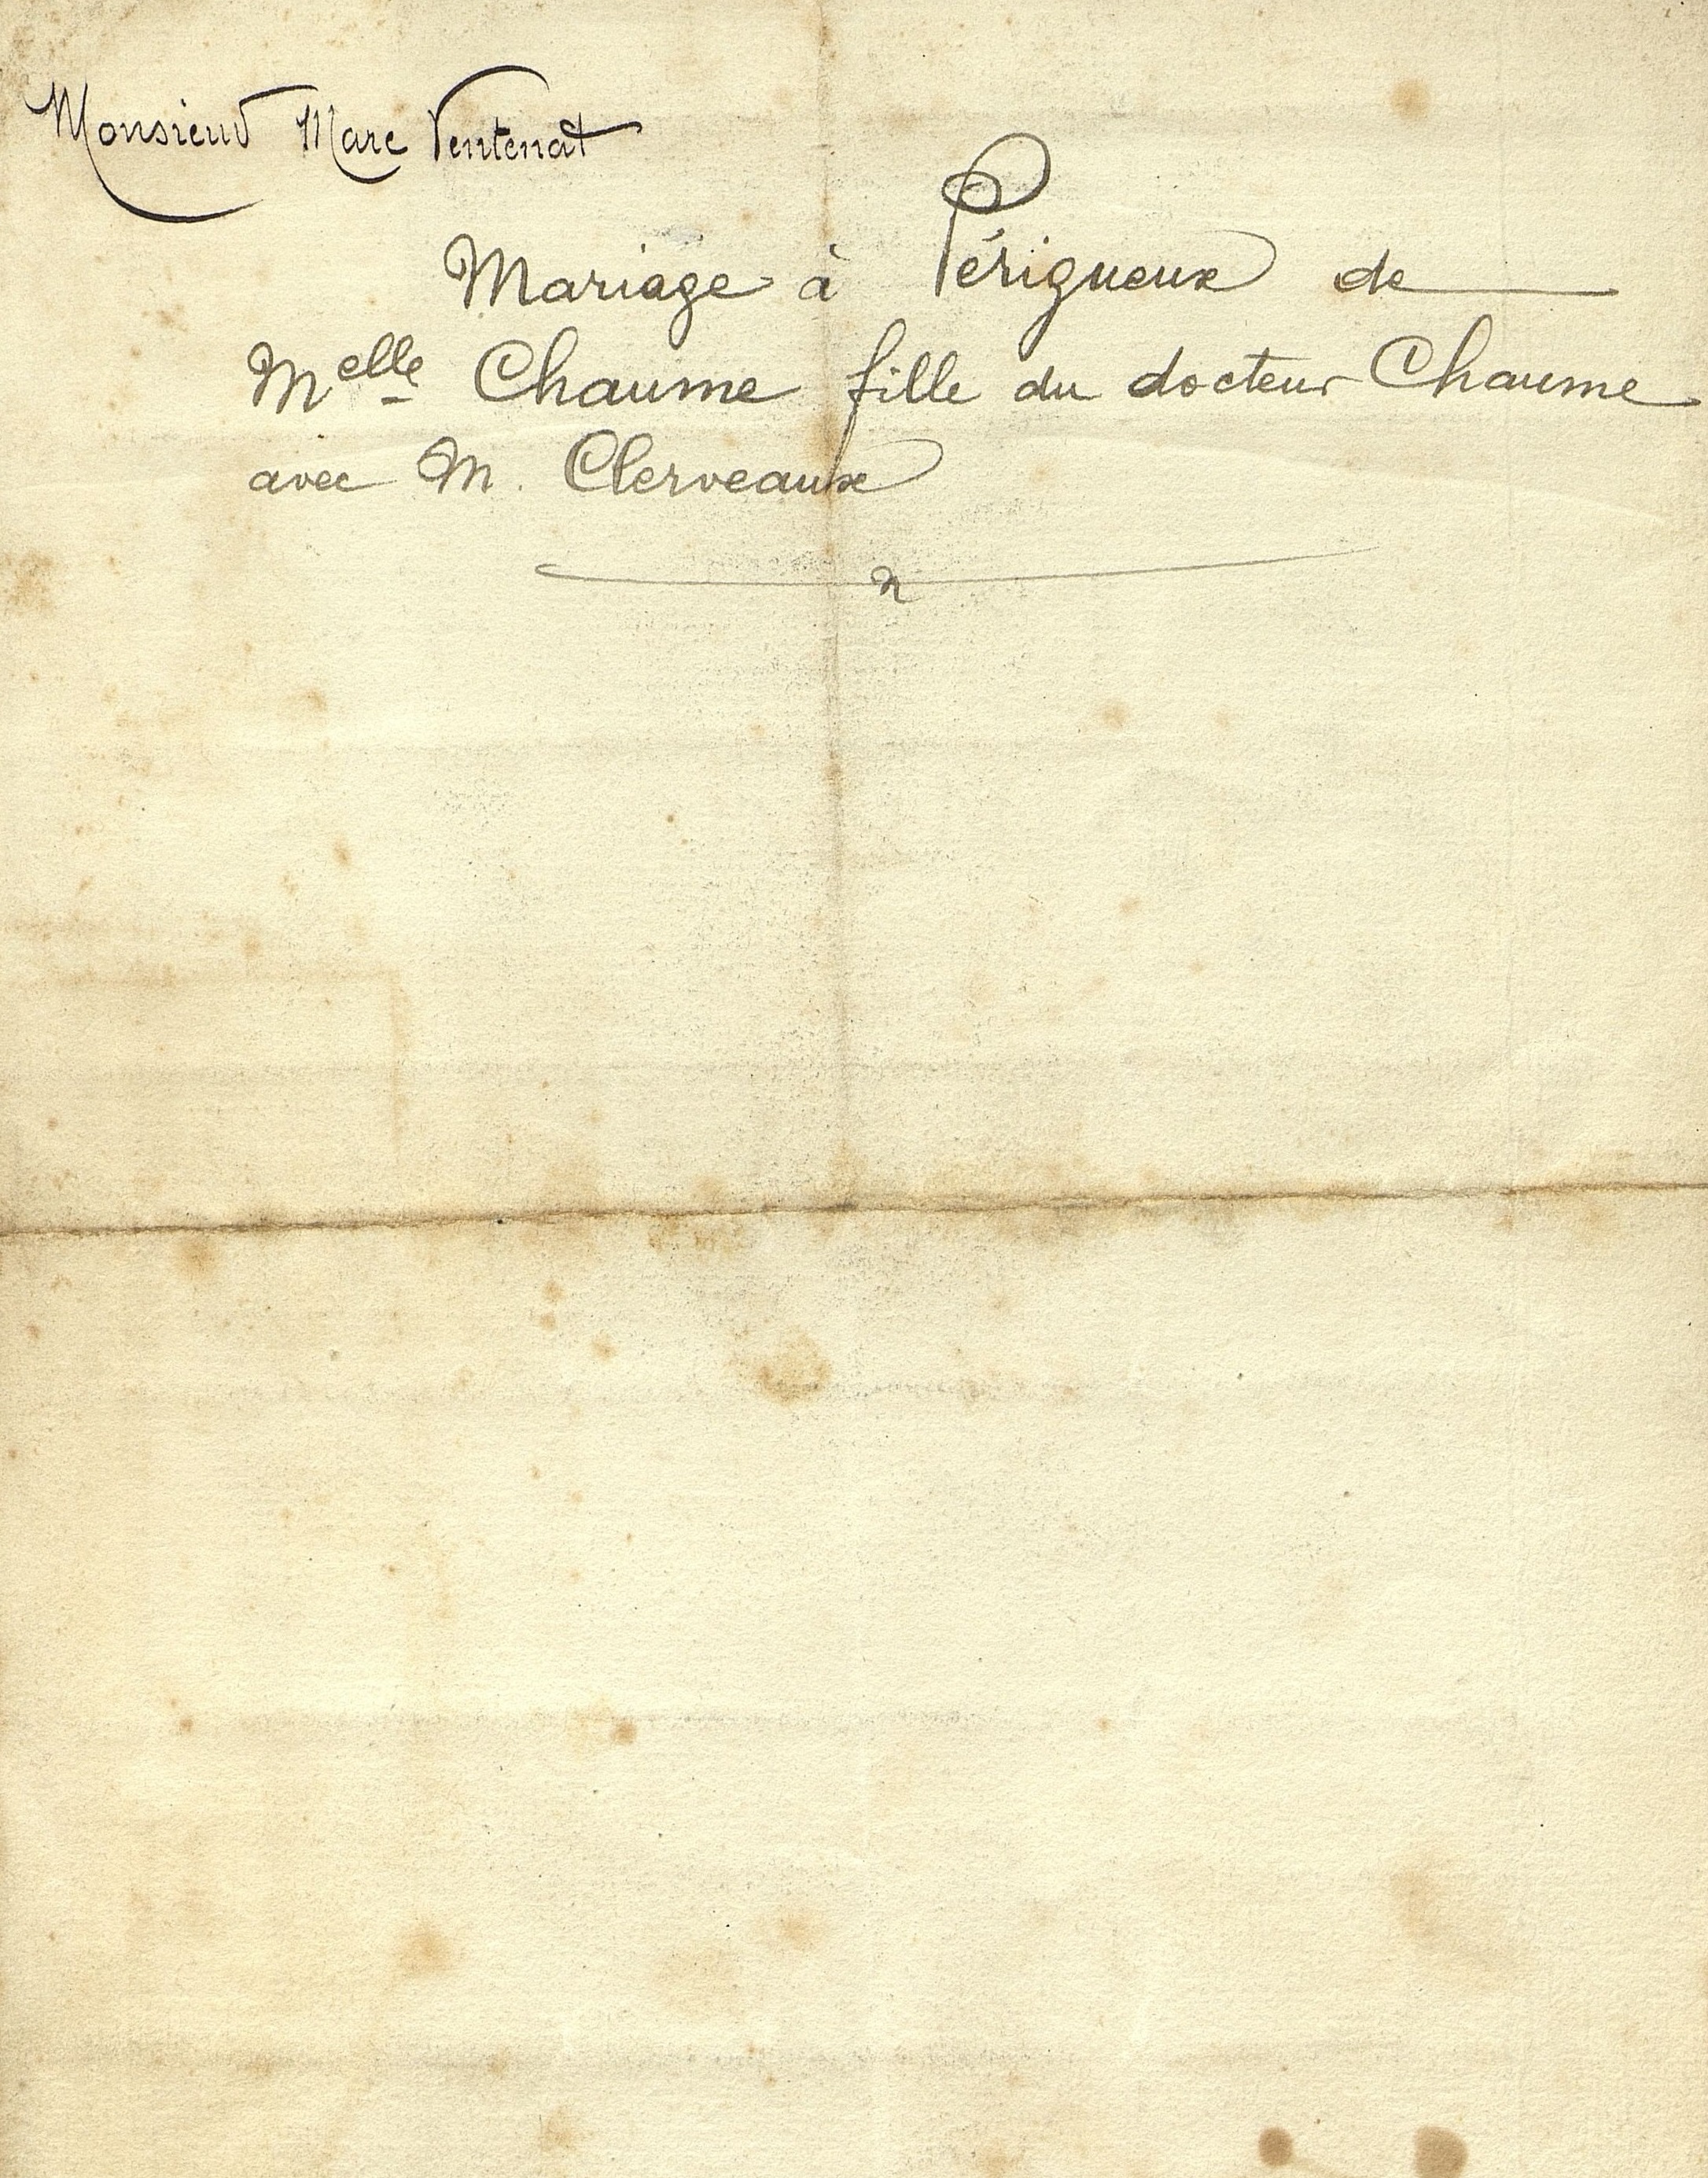 Monsieur Marc Ventenat
Mariage à Périgueux de
Melle Chaume fille du docteur Chaume
avec M. Clerveaux